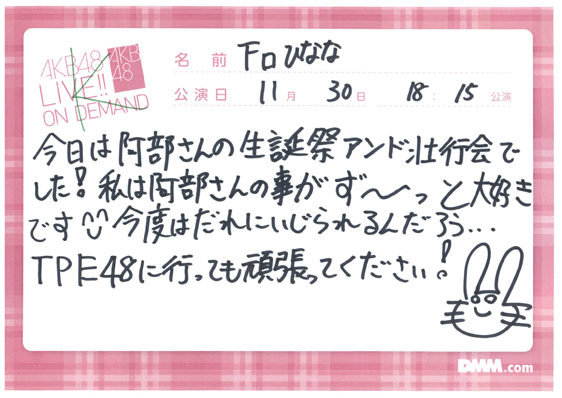 AKB48
LIVE!!
ON DEMAND
AKB
48
名前 下口ひなな
公演日 11月 30日 18:15 公演
今日は阿部さんの生誕祭アンド壮行会で
した!私は阿部さんの事がず〜〜っと大好き
です 今度はだれにいじられるんだろう...
TPE48に行っても頑張ってください!
DMM.com